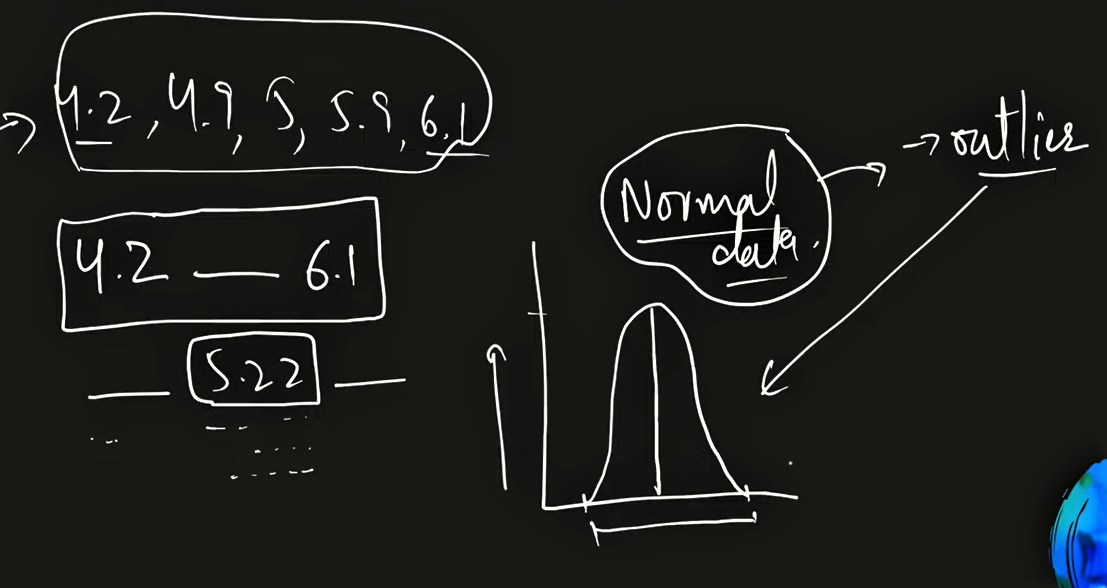 → 4.2, 4.9, 5, 5.9, 6.1
4.2 — 6.1
— 5.22 —
Normal
data.
→ outlier